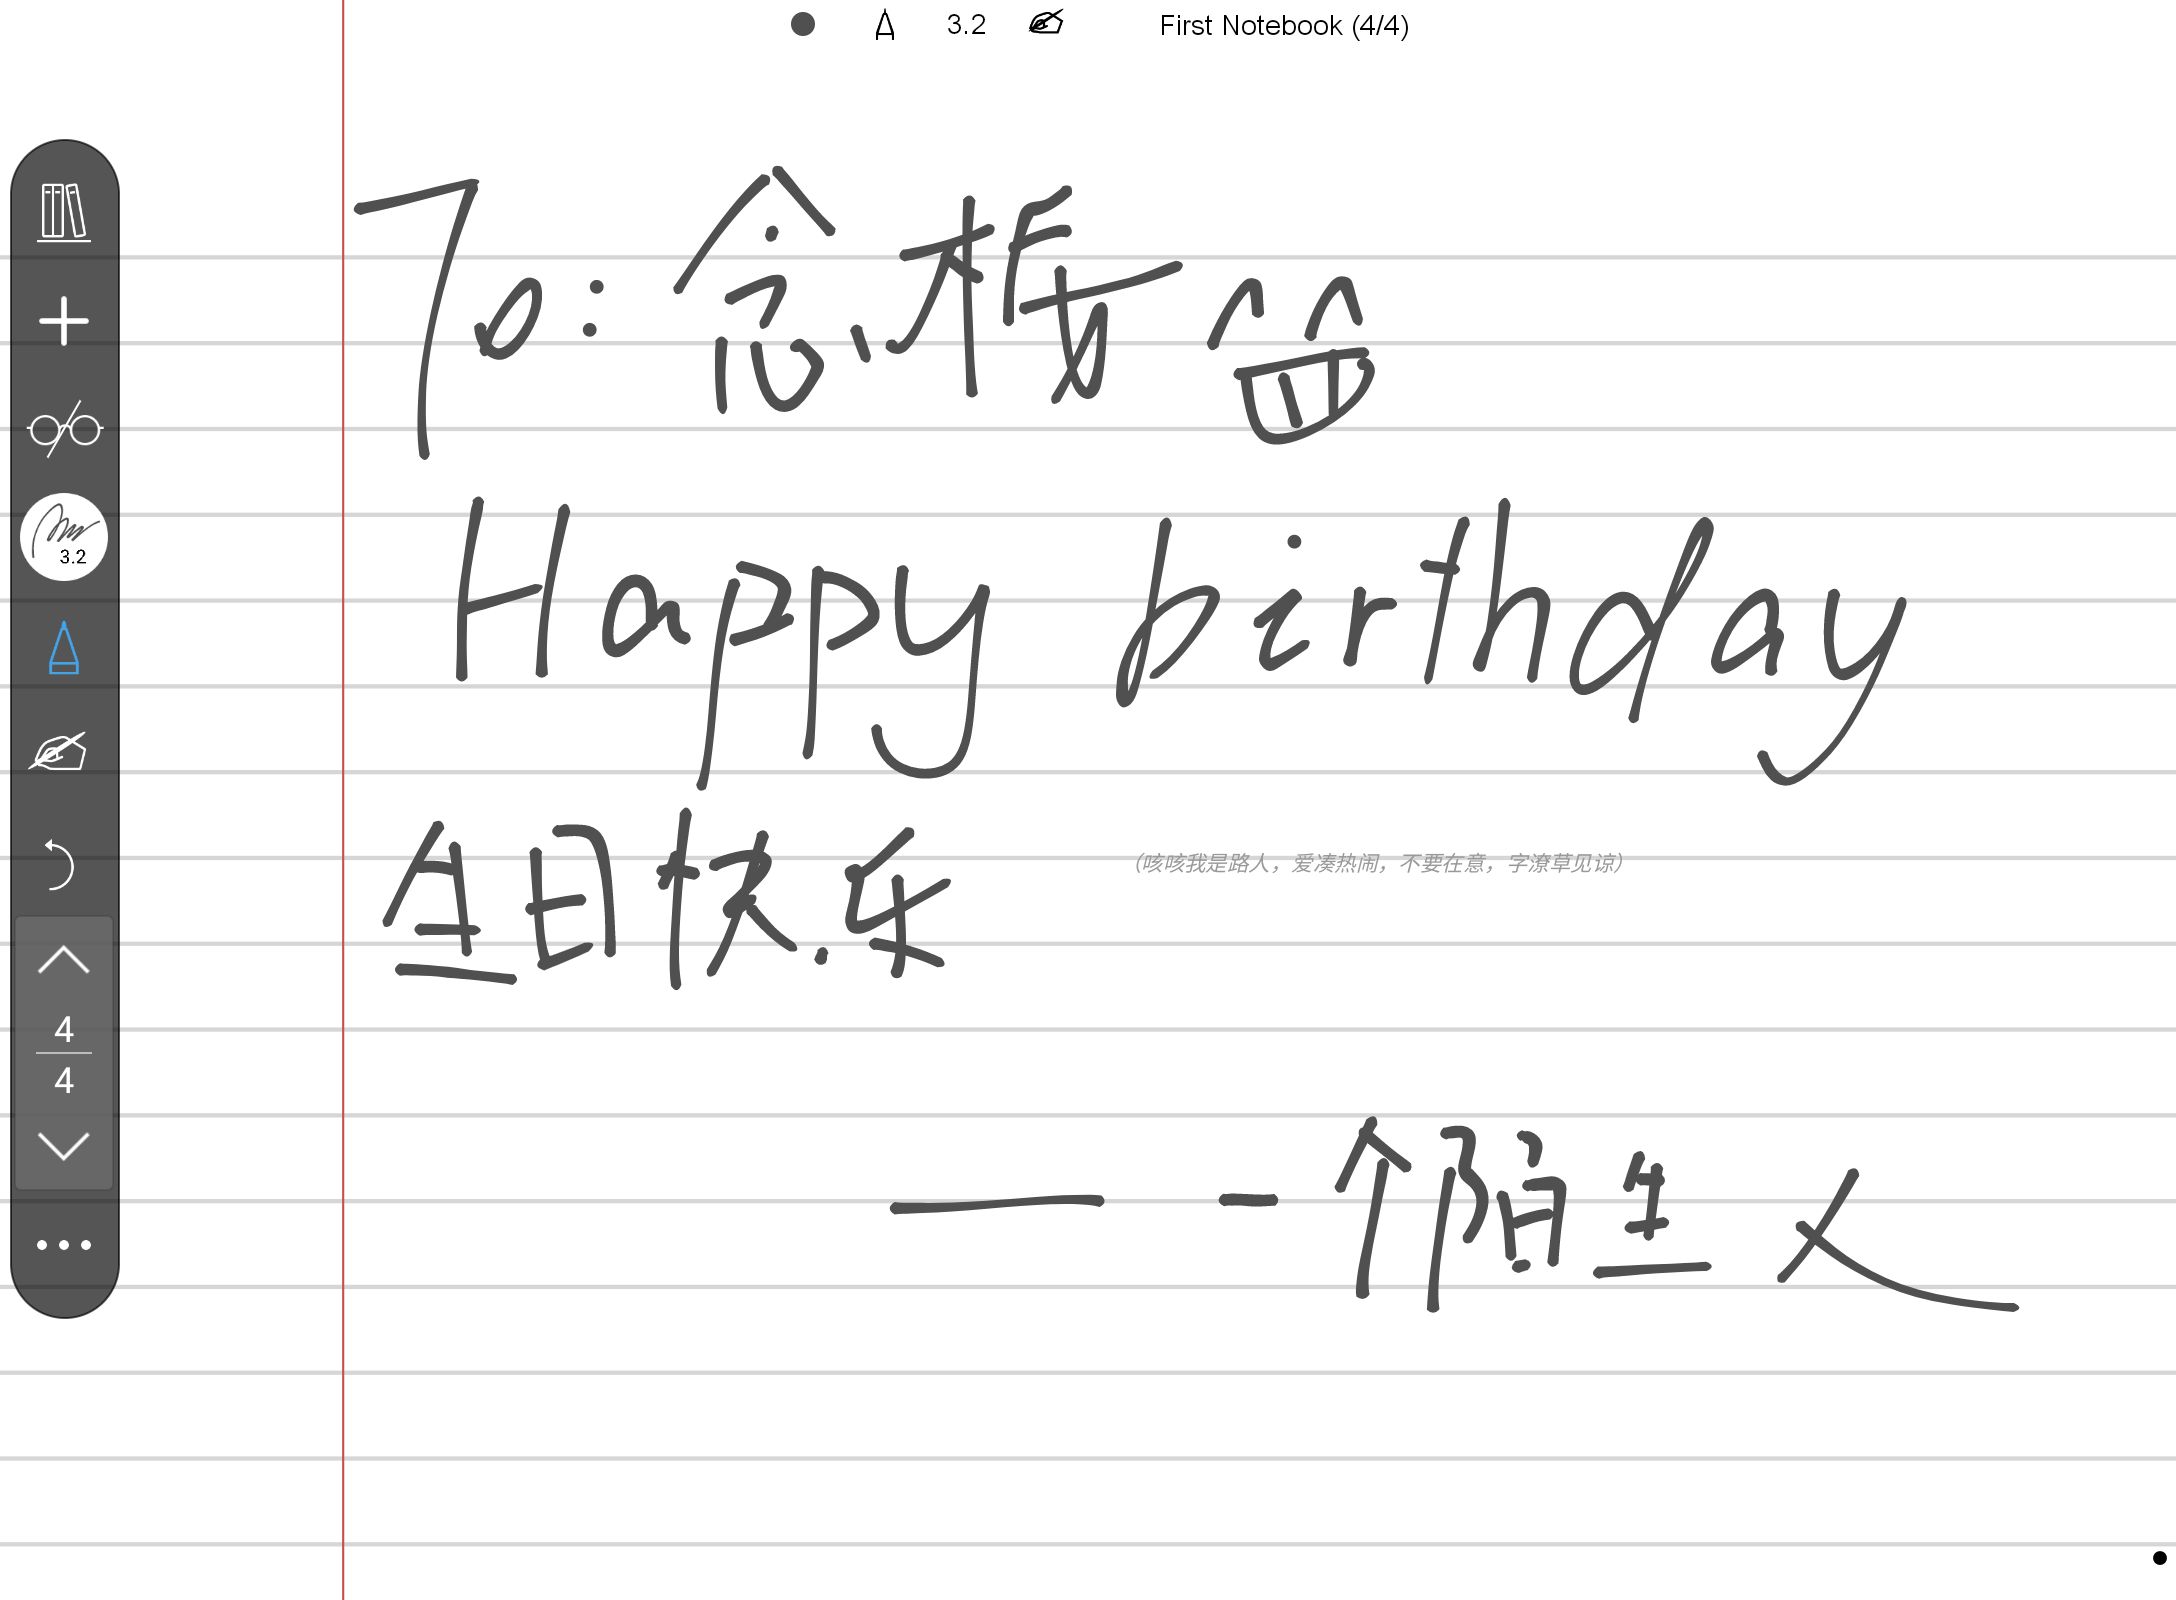 3.2 First Notebook (4/4)
To: 念桥
Happy birthday
生日快乐
(咳咳我是路人，爱凑热闹，不要在意，字潦草见谅)
—— 一个陌生人
3.2
4
4